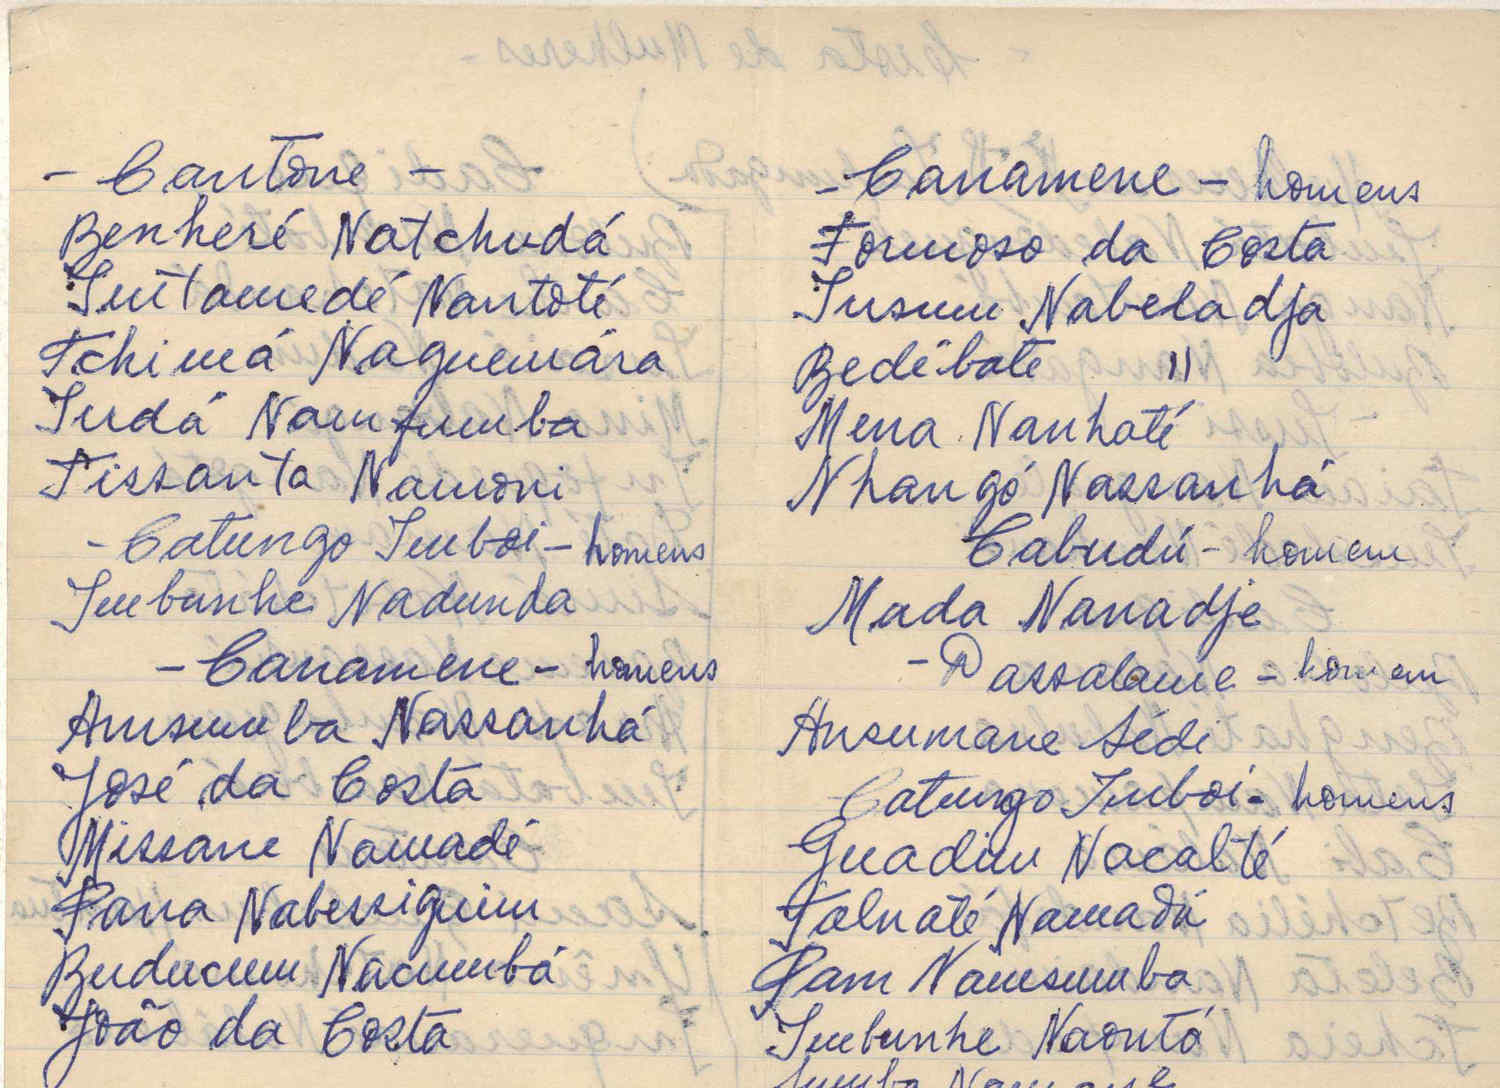 - Cantone -
Benheré Natchudá
Imtamedé Nantoté
Tchimá Naguemára
Indá Namfumba
Tissanta Namoni
- Catungo Imboi - homens
Imbunhe Nadunda
- Canamene - homens
Amsumba Nassanhá
José da Costa
Missane Namadé
Pana Nabessiguim
Buducum Nacumbá
João da Costa
- Canamene - homens
Formoso da Costa
Insumu Nabeladja
Bedébate 11
Mena Nanhaté
Nhangó Nassanhá
Cabudú - homem
Mada Nanadje
- Passalame - homem
Ansumane Sédi
Catungo Imboi - homens
Guadim Nacalté
Talnaté Namadú
Pam Namsumba
Imbunhe Naontó